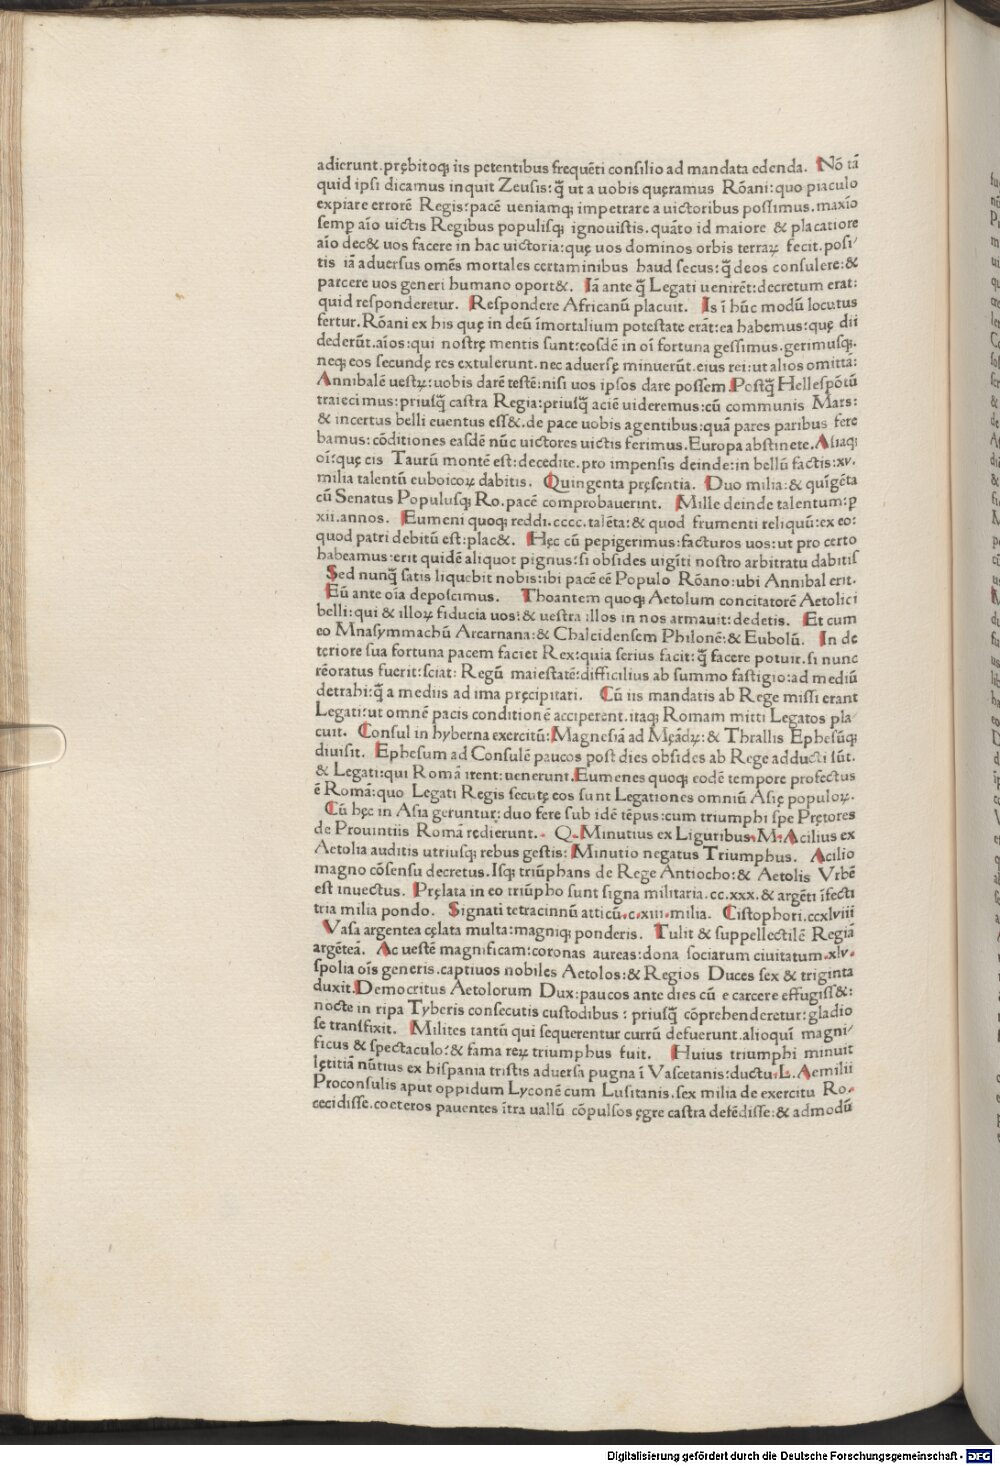 adierunt.prębitoq; iis petentibus frequēti consilio ad mandata edenda. Nō tā
quid ipsi dicamus inquit Zeusis:q̄ ut a uobis quęramus Rōani:quo piaculo
expiare errorē Regis:pacē ueniamq; impetrare a uictoribus possimus.maxīo
semp aīo uictis Regibus populisq; ignouistis.quāto id maiore & placatiore
aīo dec& uos facere in hac uictoria:quę uos dominos orbis terraꝝ fecit.posi/
tis iā aduersus omēs mortales certaminibus haud secus:q̄ deos consulere:&
parcere uos generi humano oport&. Iā ante q̄ Legati uenirēt:decretum erat:
quid responderetur. Respondere Africanū placuit. Is ī hūc modū locutus
fertur.Rōani ex his quę in deū īmortalium potestate erāt:ea habemus:quę dii
dederūt.aīos:qui nostrę mentis sunt:eosdē in oī fortuna gessimus.gerimusq;.
neq; eos secundę res extulerunt.nec aduersę minuerūt.eius rei:ut alios omittā:
Annibalē uestꝝ:uobis darē testē:nisi uos ipsos dare possem.Postq̄ Hellespōtū
traiecimus:priusq̄ castra Regia:priusq̄ aciē uideremus:cū communis Mars:
& incertus belli euentus ess&.de pace uobis agentibus:quā pares paribus fere
bamus:cōditiones easdē nūc uictores uictis ferimus.Europa abstinete.Asiaq;
oī:quę cis Taurū montē est:decedite.pro impensis deinde:in bellū factis:xv.
milia talentū euboicoꝝ dabitis. Quingenta pręsentia. Duo milia:& quīgēta
cū Senatus Populusq; Ro.pacē comprobauerint. Mille deinde talentum:ꝑ
xii.annos. Eumeni quoq; reddi.cccc.talēta:& quod frumenti reliquū:ex eo:
quod patri debitū est:plac&. Hęc cū pepigerimus:facturos uos:ut pro certo
habeamus:erit quidē aliquot pignus:si obsides uigīti nostro arbitratu dabitis
Sed nunq̄ satis liquebit nobis:ibi pacē eē Populo Rōano:ubi Annibal erit.
Eū ante oīa deposcimus. Thoantem quoq; Aetolum concitatorē Aetolici
belli:qui & illoꝝ fiducia uos:& uestra illos in nos armauit:dedetis. Et cum
eo Mnasymmachū Arcarnana:& Chalcidensem Philonē:& Eubolū. In de
teriore sua fortuna pacem faciet Rex:quia serius facit:q̄ facere potuit.si nunc
rēoratus fuerit:sciat: Regū maiestatē:difficilius ab summo fastigio:ad mediū
detrahi:q̄ a mediis ad ima pręcipitari. Cū iis mandatis ab Rege missi erant
Legati:ut omnē pacis conditionē acciperent.itaq; Romam mitti Legatos pla/
cuit. Consul in hyberna exercitū:Magnesiā ad Męādꝝ:& Thrallis Ephesūq;
diuisit. Ephesum ad Consulē paucos post dies obsides ab Rege adducti sūt.
& Legati:qui Romā irent:uenerunt.Eumenes quoq; eodē tempore profectus
ē Romā:quo Legati Regis secutę eos sunt Legationes omniū Asię populoꝝ.
Cū hęc in Asia geruntur:duo fere sub idē tēpus:cum triumphi spe Prętores
de Prouintiis Romā rędierunt. Q.Minutius ex Liguribus.M.Acilius ex
Aetolia auditis utriusq; rebus gestis: Minutio negatus Triumphus. Acilio
magno cōsensu decretus.Isq; triūphans de Rege Antiocho:& Aetolis Vrbē
est inuectus. Pręlata in eo triūpho sunt signa militaria.cc.xxx.& argēti īfecti
tria milia pondo. Signati tetracinnū atticū.c.xiii.milia. Cistophori.ccxlviii
Vasa argentea cęlata multa:magniq; ponderis. Tulit & suppellectilē Regiā
argēteā. Ac uestē magnificam:coronas aureas:dona sociarum ciuitatum.xlv.
spolia oīs generis.captiuos nobiles Aetolos:& Regios Duces sex & triginta
duxit.Democritus Aetolorum Dux:paucos ante dies cū e carcere effugiss&:
nocte in ripa Tyberis consecutis custodibus : priusq̄ cōprehenderetur:gladio
se transfixit. Milites tantū qui sequerentur currū defuerunt.alioquī magni/
ficus & spectaculo:& fama reꝝ triumphus fuit. Huius triumphi minuit
lętitiā nūtius ex hispania tristis aduersa pugna ī Vascetanis:ductu.L.Aemilii
Proconsulis aput oppidum Lyconē cum Lusitanis.sex milia de exercitu Ro.
cecidisse.coeteros pauentes ītra uallū cōpulsos ęgre castra defēdisse:& admodū
Digitalisierung gefördert durch die Deutsche Forschungsgemeinschaft - DFG